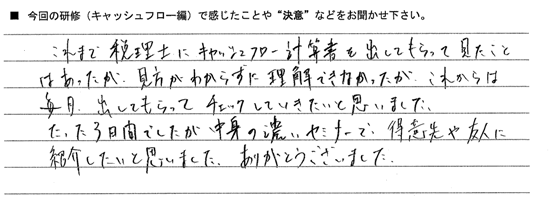 ■ 今回の研修（キャッシュフロー編）で感じたことや“決意”などをお聞かせ下さい。
これまで税理士にキャッシュフロー計算書を出してもらって見たこと
はあったが、見方がわからずに理解できなかったが、これからは
毎月、出してもらってチェックしていきたいと思いました。
たった3日間でしたが中身の濃いセミナーで、得意先や友人に
紹介したいと思いました。ありがとうございました。